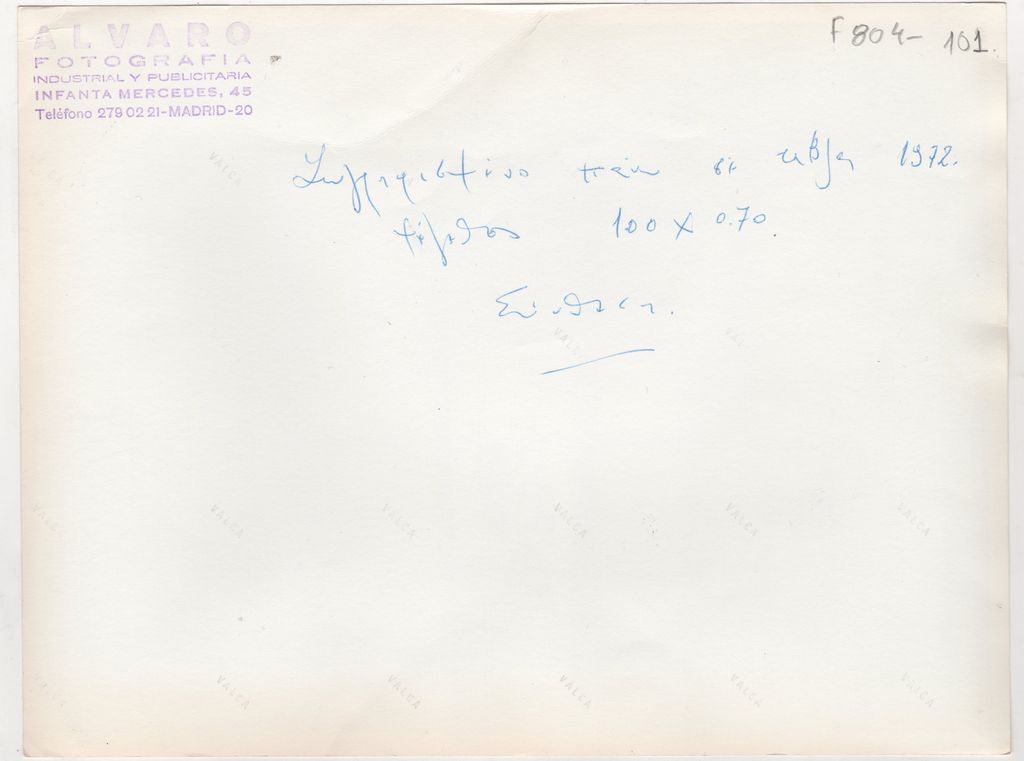 ALVARO
FOTOGRAFIA
INDUSTRIAL Y PUBLICITARIA
INFANTA MERCEDES, 45
Teléfono 279 02 21-MADRID-20
F 804- 101.
Ζωγραφισμένο πάνω σε τάβλα 1972.
μέγεθος 100 X 0.70.
Σύνθεση.
VALCA
VALCA
VALCA
VALCA VALCA VALCA VALCA VALCA VALCA
VALCA VALCA VALCA VALCA VALCA